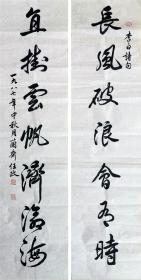 李白詩句
長風破浪會有時
直掛雲帆濟滄海
一九八七年中秋月蘭齋任政